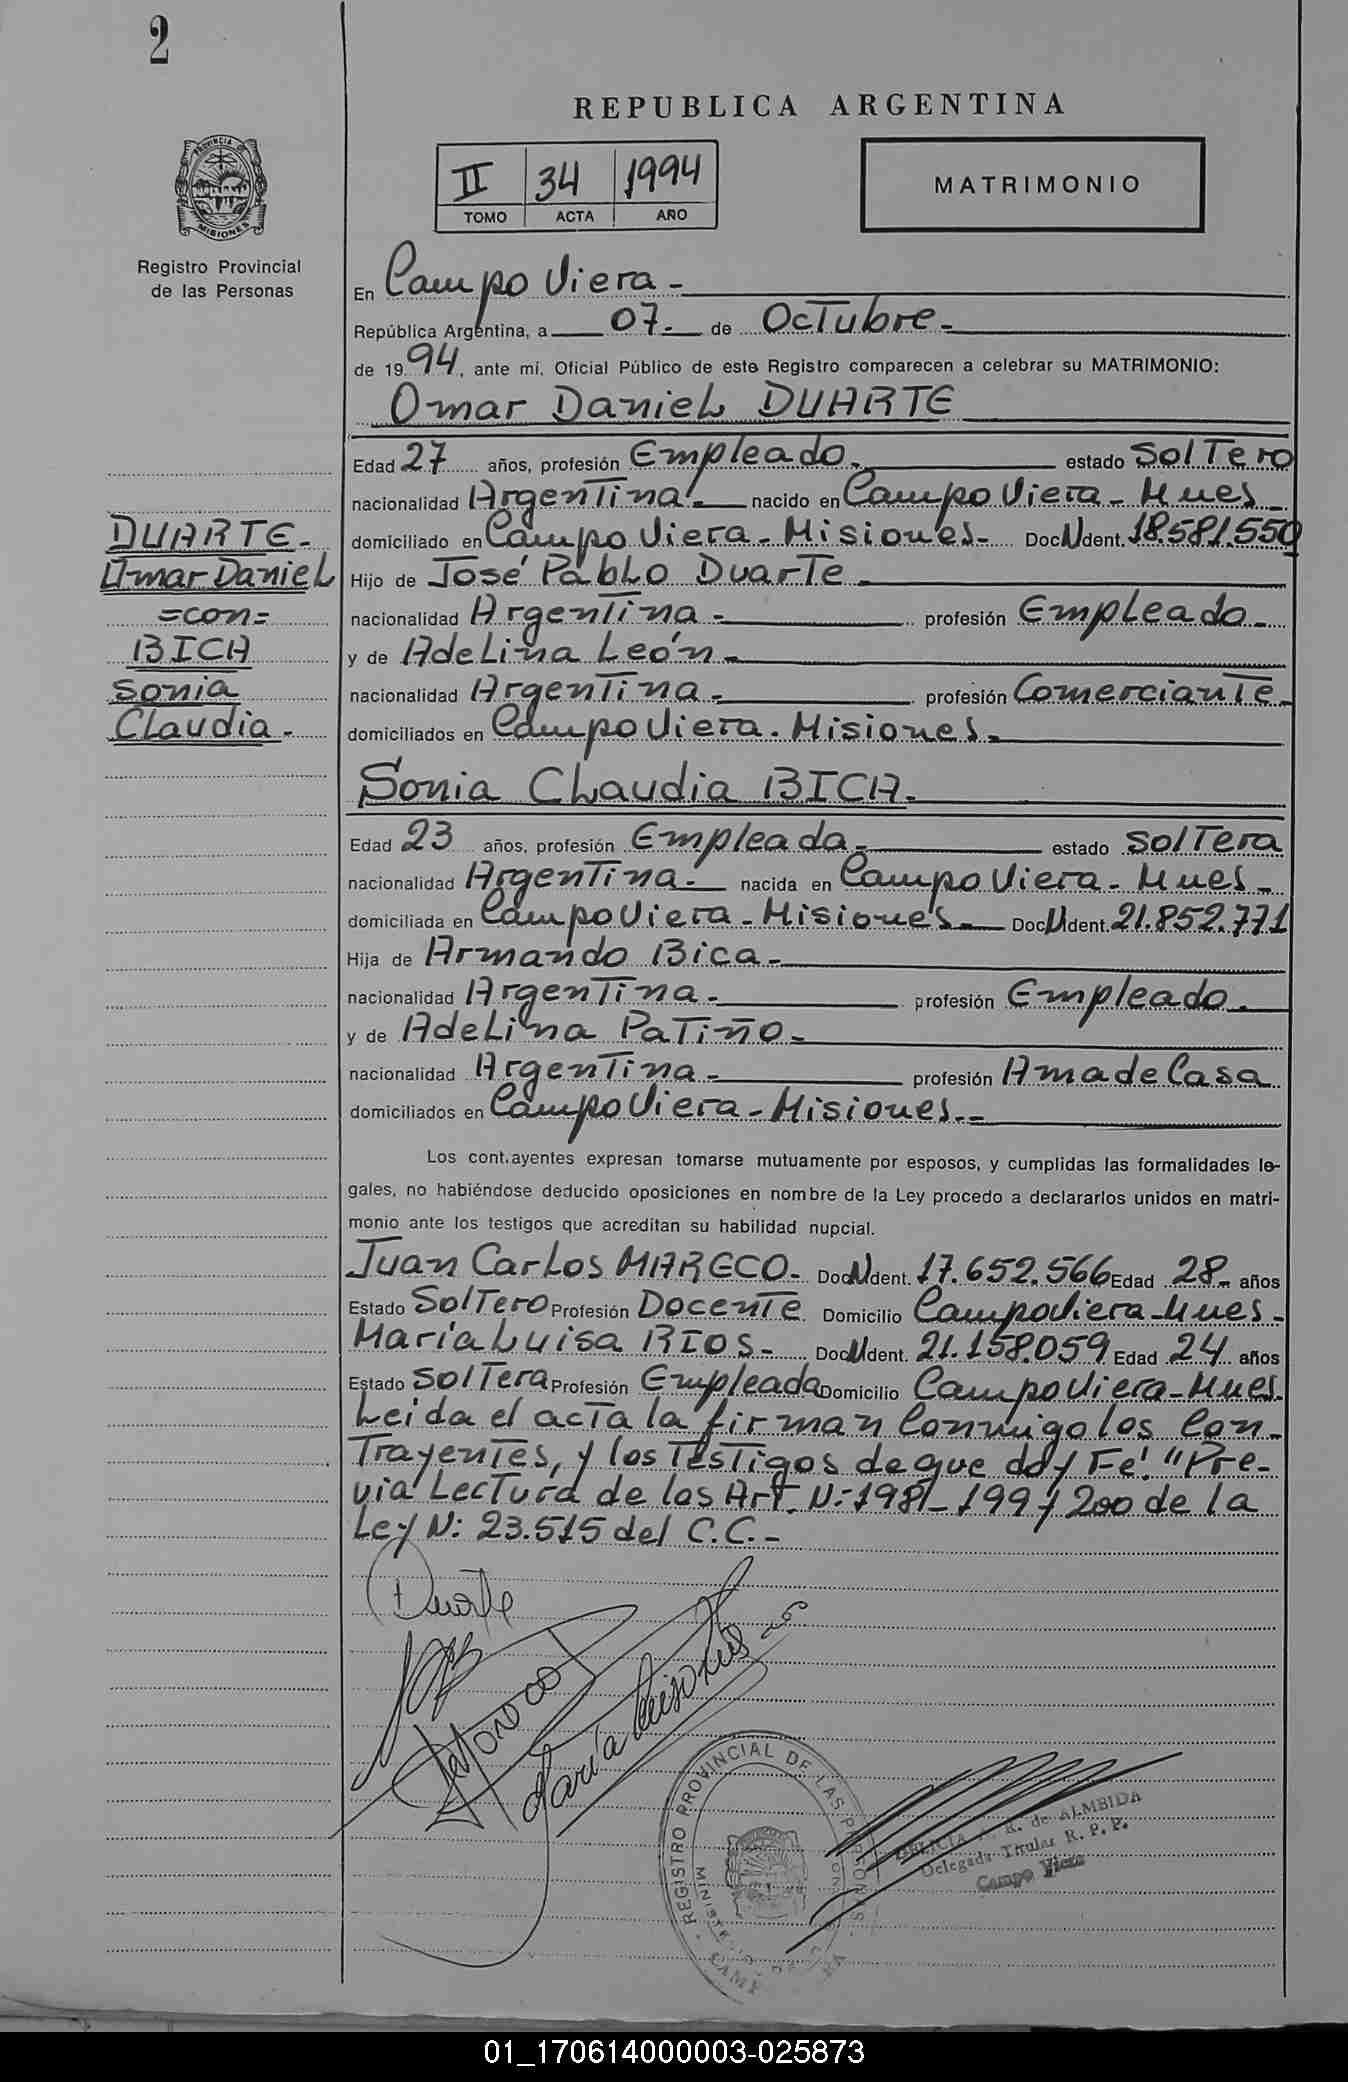 2
REPUBLICA ARGENTINA
PROVINCIA DE MISIONES
Registro Provincial
de las Personas
II 34 1994
TOMO ACTA AÑO
MATRIMONIO
En Campo Viera -
República Argentina, a 07- de Octubre-
de 19 94, ante mí, Oficial Público de este Registro comparecen a celebrar su MATRIMONIO:
Omar Daniel DUARTE
Edad 27 años, profesión Empleado. estado Soltero
nacionalidad Argentina - nacido en Campo Viera - Mnes -
domiciliado en Campo Viera - Misiones - Doc N Ident. 18.581.550
Hijo de José Pablo Duarte -
nacionalidad Argentina - profesión Empleado -
y de Adelina León -
nacionalidad Argentina - profesión Comerciante -
domiciliados en Campo Viera. Misiones -
DUARTE -
Omar Daniel
=con=
BICA
Sonia
Claudia -
Sonia Claudia BICA -
Edad 23 años, profesión Empleada - estado Soltera
nacionalidad Argentina - nacida en Campo Viera - Mnes -
domiciliada en Campo Viera - Misiones - Doc N Ident. 21.852.771
Hija de Armando Bica -
nacionalidad Argentina - profesión Empleado -
y de Adelina Patiño -
nacionalidad Argentina - profesión Ama de Casa
domiciliados en Campo Viera - Misiones --
Los cont.ayentes expresan tomarse mutuamente por esposos, y cumplidas las formalidades le-
gales, no habiéndose deducido oposiciones en nombre de la Ley procedo a declararlos unidos en matri-
monio ante los testigos que acreditan su habilidad nupcial.
Juan Carlos MARECO - Doc N Ident. 17.652.566 Edad 28 - años
Estado Soltero Profesión Docente Domicilio Campo Viera - Mnes -
María Luisa RIOS - Doc N Ident. 21.158.059 Edad 24 años
Estado Soltera Profesión Empleada Domicilio Campo Viera - Mnes.
Leida el acta la firman Conmigo los Con-
Trayentes, y los Testigos de que doy Fé. "Pre-
via Lectura de los Art. N: 198 - 199 y 200 de la
Ley N: 23.515 del C.C. -
Duarte
Mareco
María Luisa Rios
REGISTRO PROVINCIAL DE LAS PERSONAS
A. R. de ALMEIDA
Delegada Titular R. P. P.
Campo Viera
01_170614000003-025873